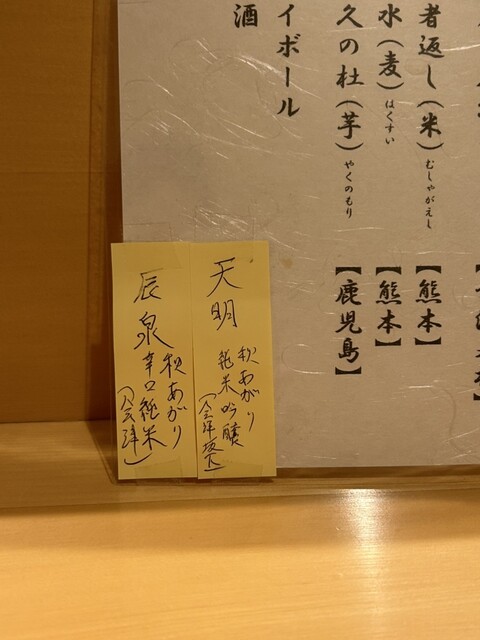 者返し(米)むしゃがえし【熊本】
水(麦)はくすい【熊本】
久の杜(芋)やくのもり【鹿児島】
イボール
酒
天明
秋あがり
純米吟醸
(会津坂下)
辰泉
秋あがり
辛口純米
(会津)